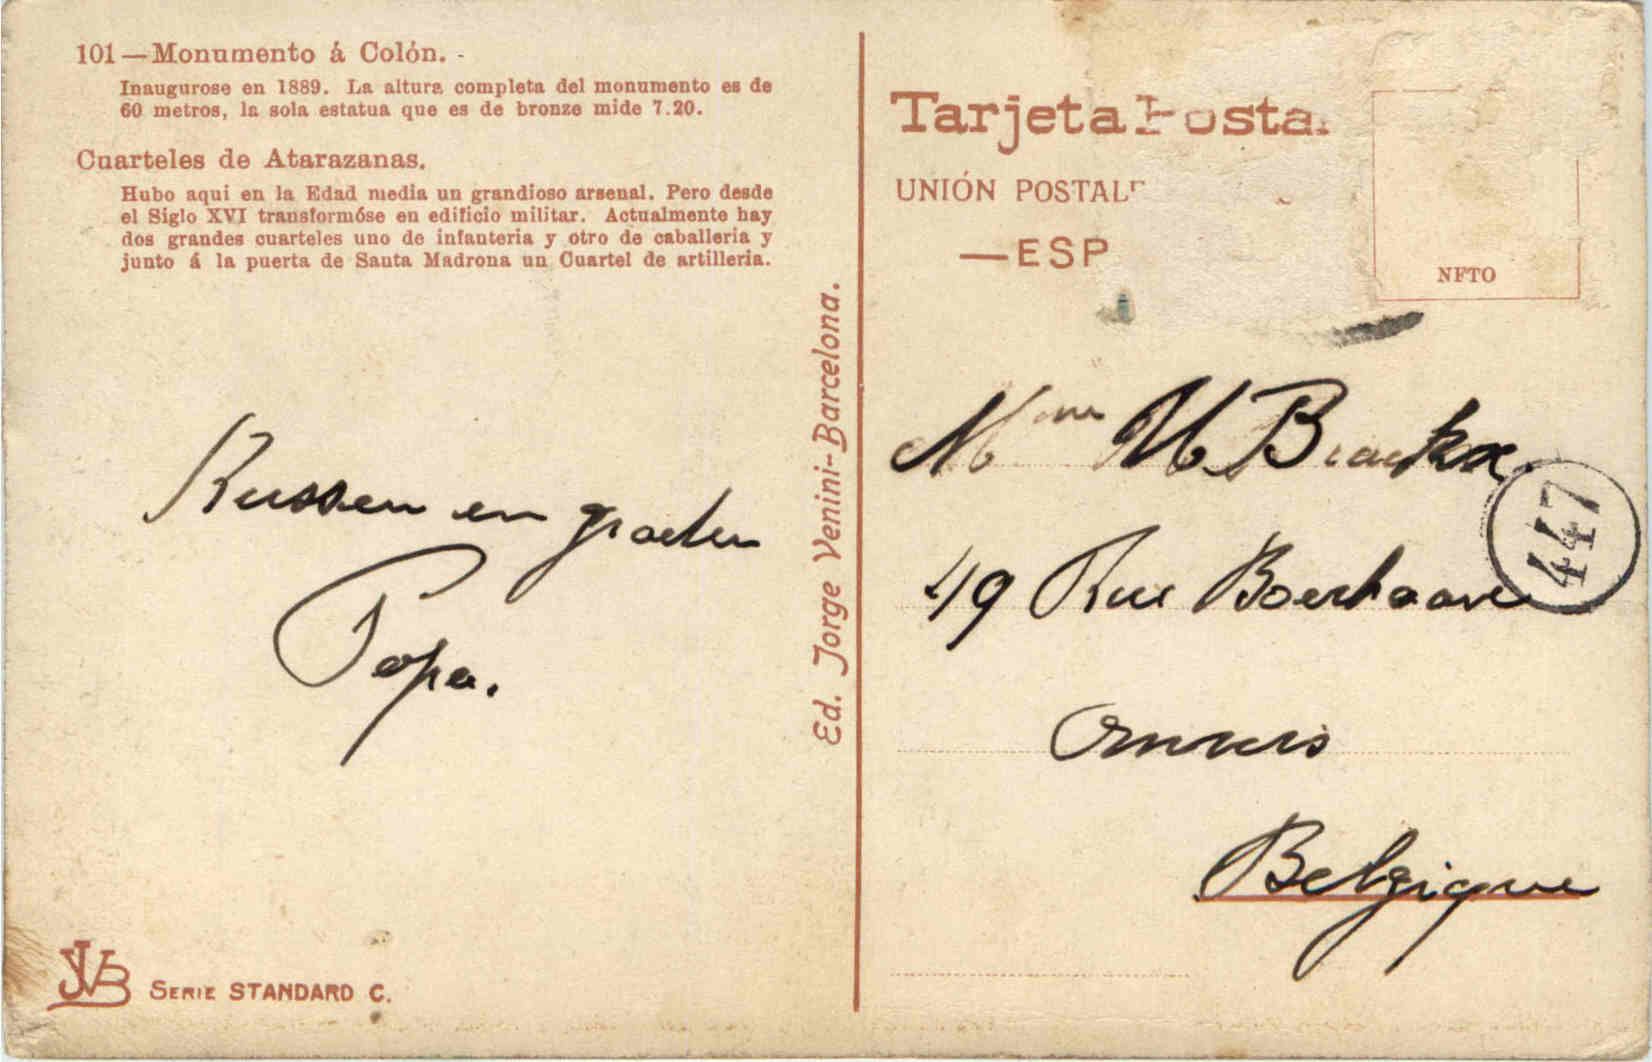 101—Monumento á Colón. -
Inaugurose en 1889. La altura completa del monumento es de
60 metros, la sola estatua que es de bronze mide 7.20.
Cuarteles de Atarazanas.
Hubo aqui en la Edad media un grandioso arsenal. Pero desde
el Siglo XVI transformóse en edificio militar. Actualmente hay
dos grandes cuarteles uno de infanteria y otro de caballeria y
junto á la puerta de Santa Madrona un Cuartel de artilleria.
Kussen en groeten
Papa.
JVB SERIE STANDARD C.
Ed. Jorge Venini-Barcelona.
Tarjeta Posta
UNIÓN POSTAL
—ESP
NFTO
Mme M Brackx
447
49 Rue Boerhaave
Anvers
Belgique